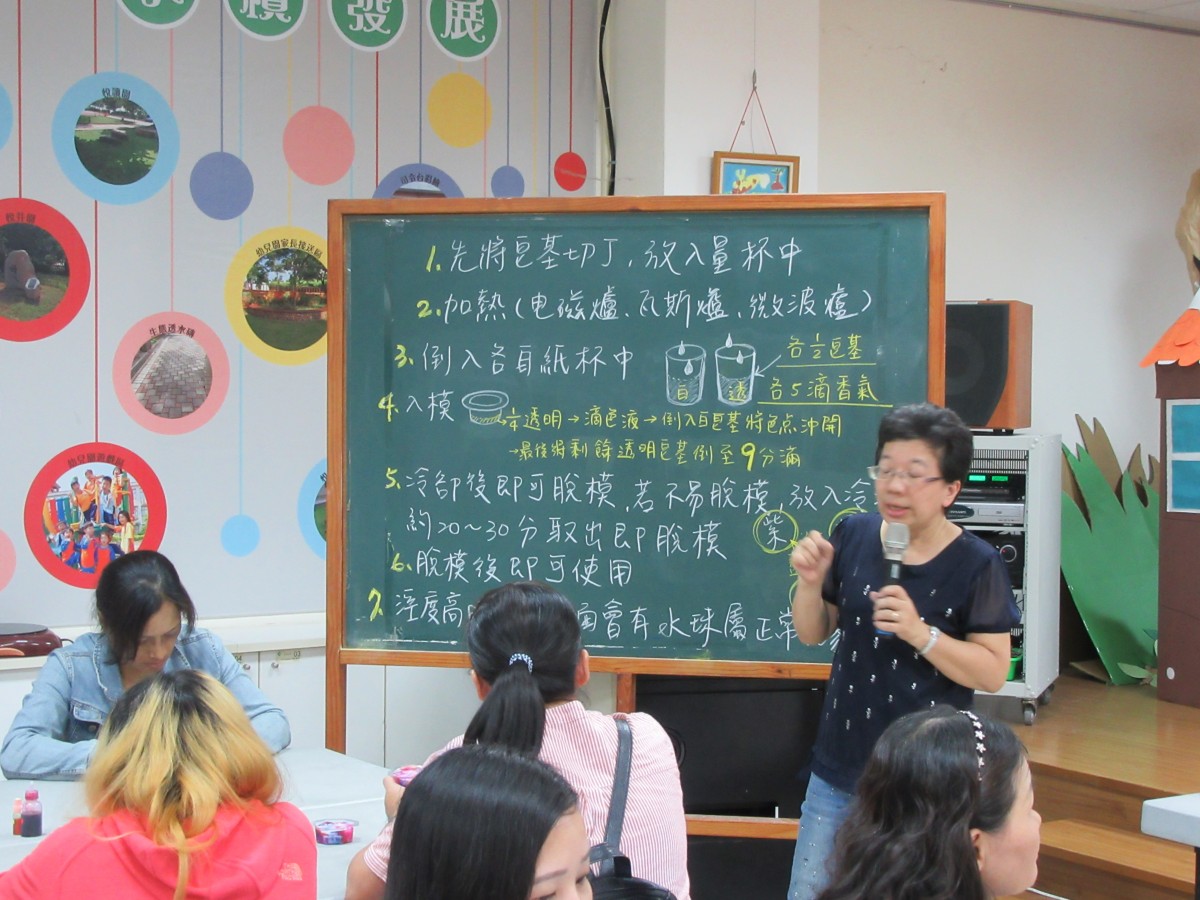 發展
校讀園
牧羊園
幼兒園家長接送區
生態透水磚
幼兒園遊戲區
1. 先將皂基切丁,放入量杯中
2. 加熱(电磁爐、瓦斯爐、微波爐)
3. 倒入各自紙杯中
白 透
各½皂基
各5滴香氣
4. 入模
透明→滴色液→倒入白皂基將色点沖開
→最後將剩餘透明皂基倒至9分滿
5. 冷却後即可脫模,若不易脫模,放入冷
約20～30分取出即脫模
紫
6. 脫模後即可使用
7. 溼度高
會有水珠屬正常